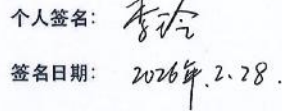 个人签名：李玲
签名日期：2026年.2.28.